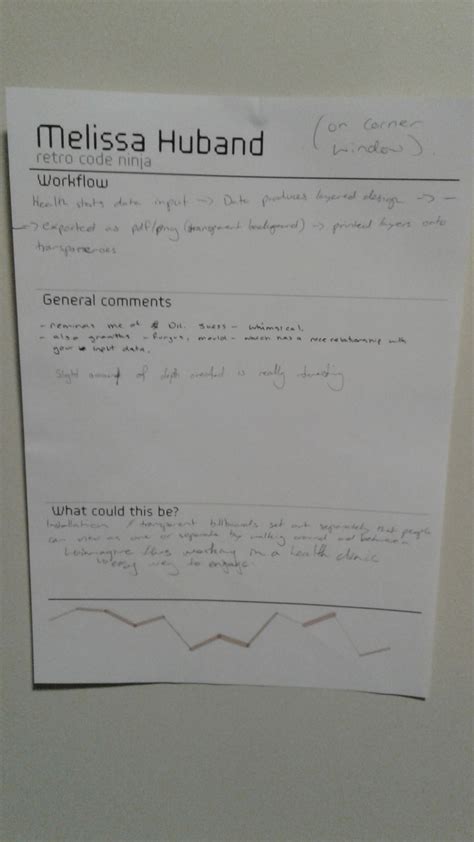 Melissa Huband
(on corner window)
retro code ninja
Workflow
Health stats data input → Data produces layered design → –
→ exported as pdf/png (transparent background) → printed layers onto
transparencies
General comments
- reminds me of Dr. Suess - whimsical.
- also growths - fungus, mould - which has a nice relationship with
your input data.
Slight amount of depth created is really interesting
What could this be?
Installation / transparent billboards set out separately that people
can view as one or separate by walking around and between
imagine this working in a health clinic
easy way to engage